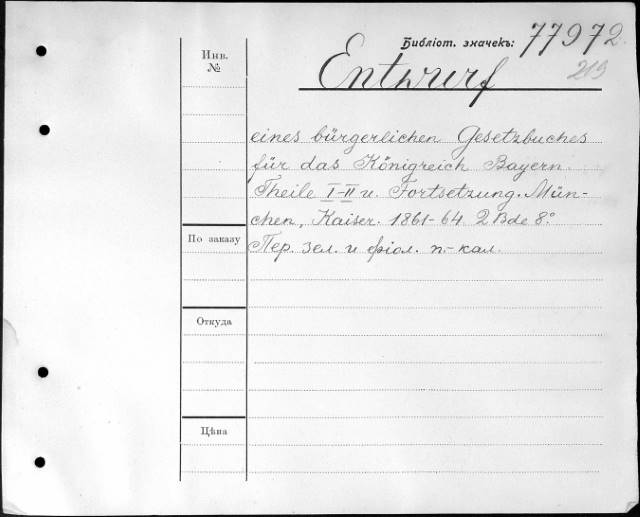 Библіот. значекъ: 77972.
213
Инв.
№
Entwurf
eines bürgerlichen Gesetzbuches
für das Königreich Bayern.
Theile I-II u. Fortsetzung. Mün-
chen, Kaiser. 1861-64. 2 Bde 8.°
По заказу
Пер. зел. и фіол. п.-кал.
Откуда
Цѣна